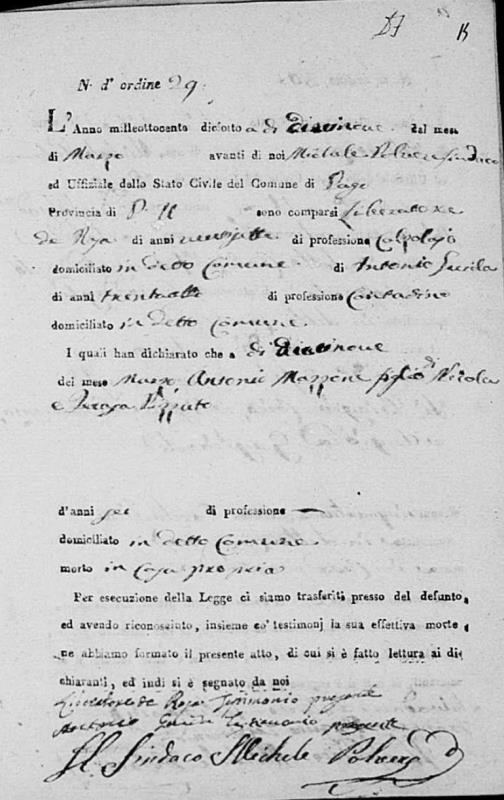 N. d' ordine 29.
L'Anno milleottocento dieciotto a dì diecinove del mese
di Marzo avanti di noi Michele Sindaco
ed Uffiziale dello Stato Civile del Comune di Pago
Provincia di P. U. sono comparsi Liberatore
de Roja di anni di professione Calzolajo
domiciliato in detto Comune di Antonio
di anni trentasette di professione Contadino
domiciliato in detto Comune
I quali han dichiarato che a dì diecinove
del mese Marzo Antonio figlio di Nicola
e Teresa
d'anni sei di professione —
domiciliato in detto Comune
morto in Casa propria
Per esecuzione della Legge ci siamo trasferiti presso del defunto,
ed avendo riconosciuto, insieme co' testimonj la sua effettiva morte
ne abbiamo formato il presente atto, di cui si è fatto lettura ai di-
chiaranti, ed indi si è segnato da noi
Liberatore de Roja Testimonio presente
Antonio Testimonio presente
Il Sindaco Michele